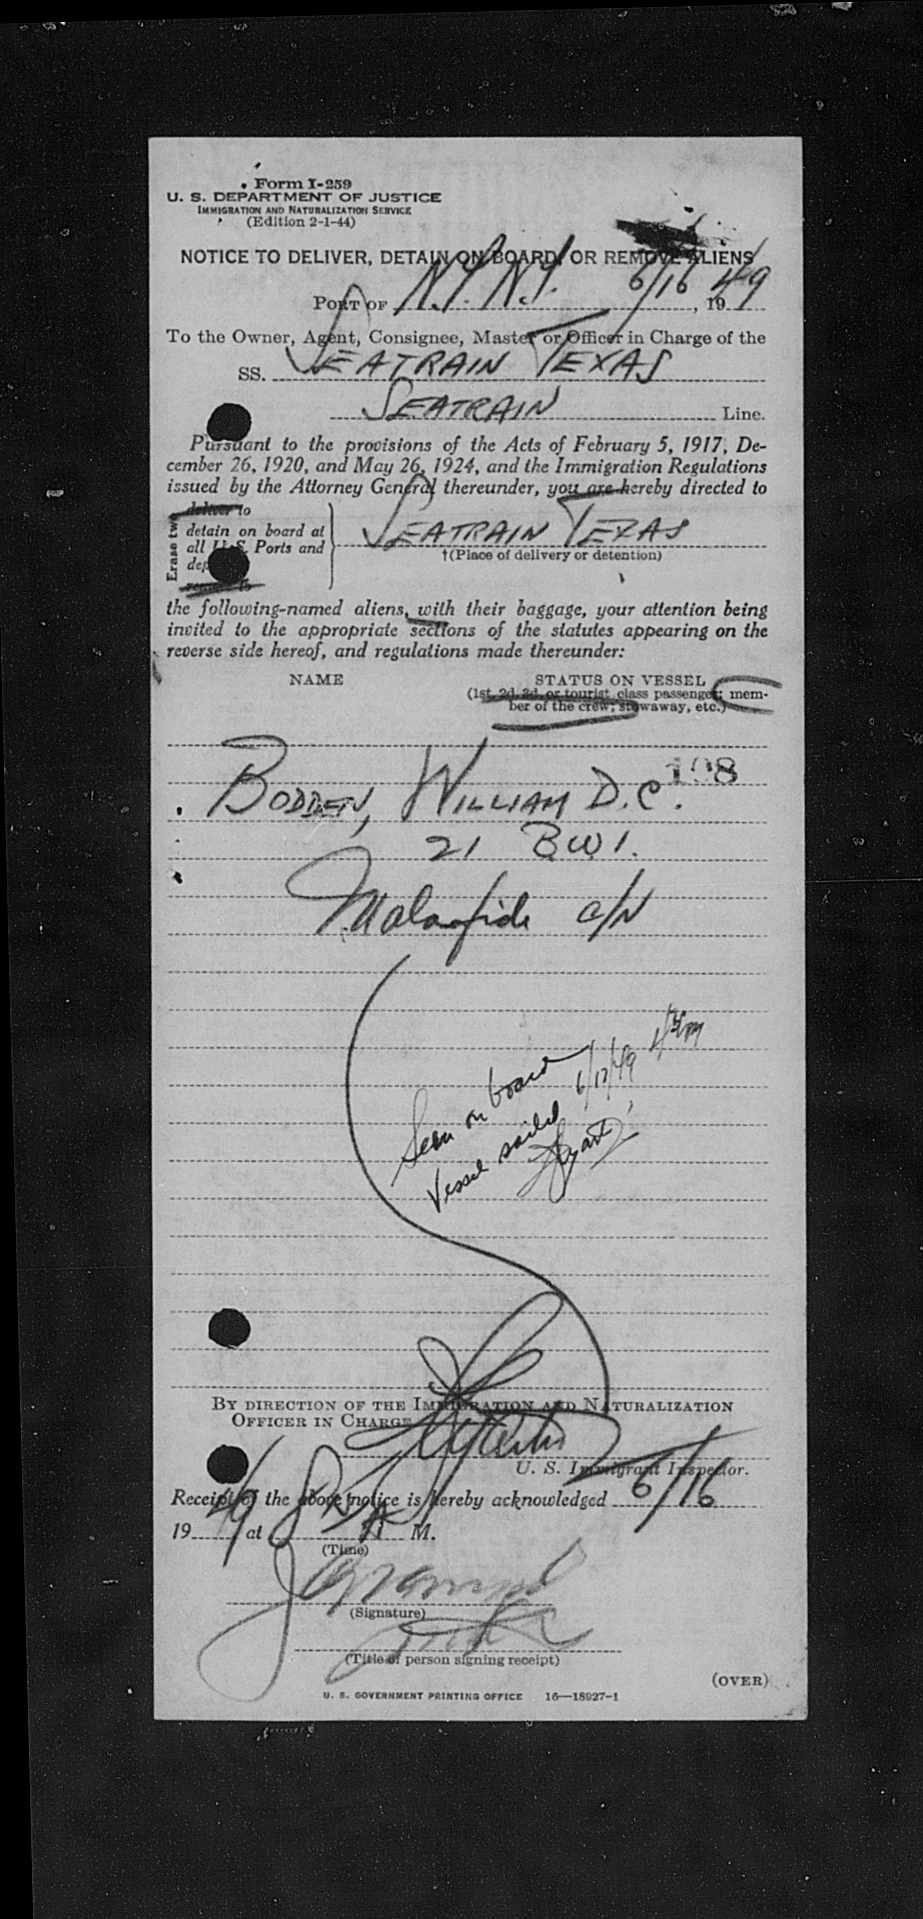 Form I-259
U. S. DEPARTMENT OF JUSTICE
IMMIGRATION AND NATURALIZATION SERVICE
(Edition 2-1-44)
NOTICE TO DELIVER, DETAIN ON BOARD, OR REMOVE ALIENS
PORT OF N.Y. N.Y. 6/16, 1949
To the Owner, Agent, Consignee, Master or Officer in Charge of the
SS. SEATRAIN TEXAS
SEATRAIN Line.
Pursuant to the provisions of the Acts of February 5, 1917, De-
cember 26, 1920, and May 26, 1924, and the Immigration Regulations
issued by the Attorney General thereunder, you are hereby directed to
Erase two
deliver to
detain on board at
all U.S. Ports and
dep
remove to
SEATRAIN TEXAS
†(Place of delivery or detention)
the following-named aliens, with their baggage, your attention being
invited to the appropriate sections of the statutes appearing on the
reverse side hereof, and regulations made thereunder:
NAME STATUS ON VESSEL
(1st, 2d, 3d, or tourist class passenger; mem-
ber of the crew; stowaway, etc.)
198
BODDEN, WILLIAM D.C.
21 BWI.
Malafide c/N
Seen on board
Vessel sailed 6/17/49
BY DIRECTION OF THE IMMIGRATION AND NATURALIZATION
OFFICER IN CHARGE
U. S. Immigrant Inspector.
Receipt of the above notice is hereby acknowledged 6/16
1949 at A M.
(Time)
(Signature)
(Title of person signing receipt)
(OVER)
U. S. GOVERNMENT PRINTING OFFICE 16—18927-1